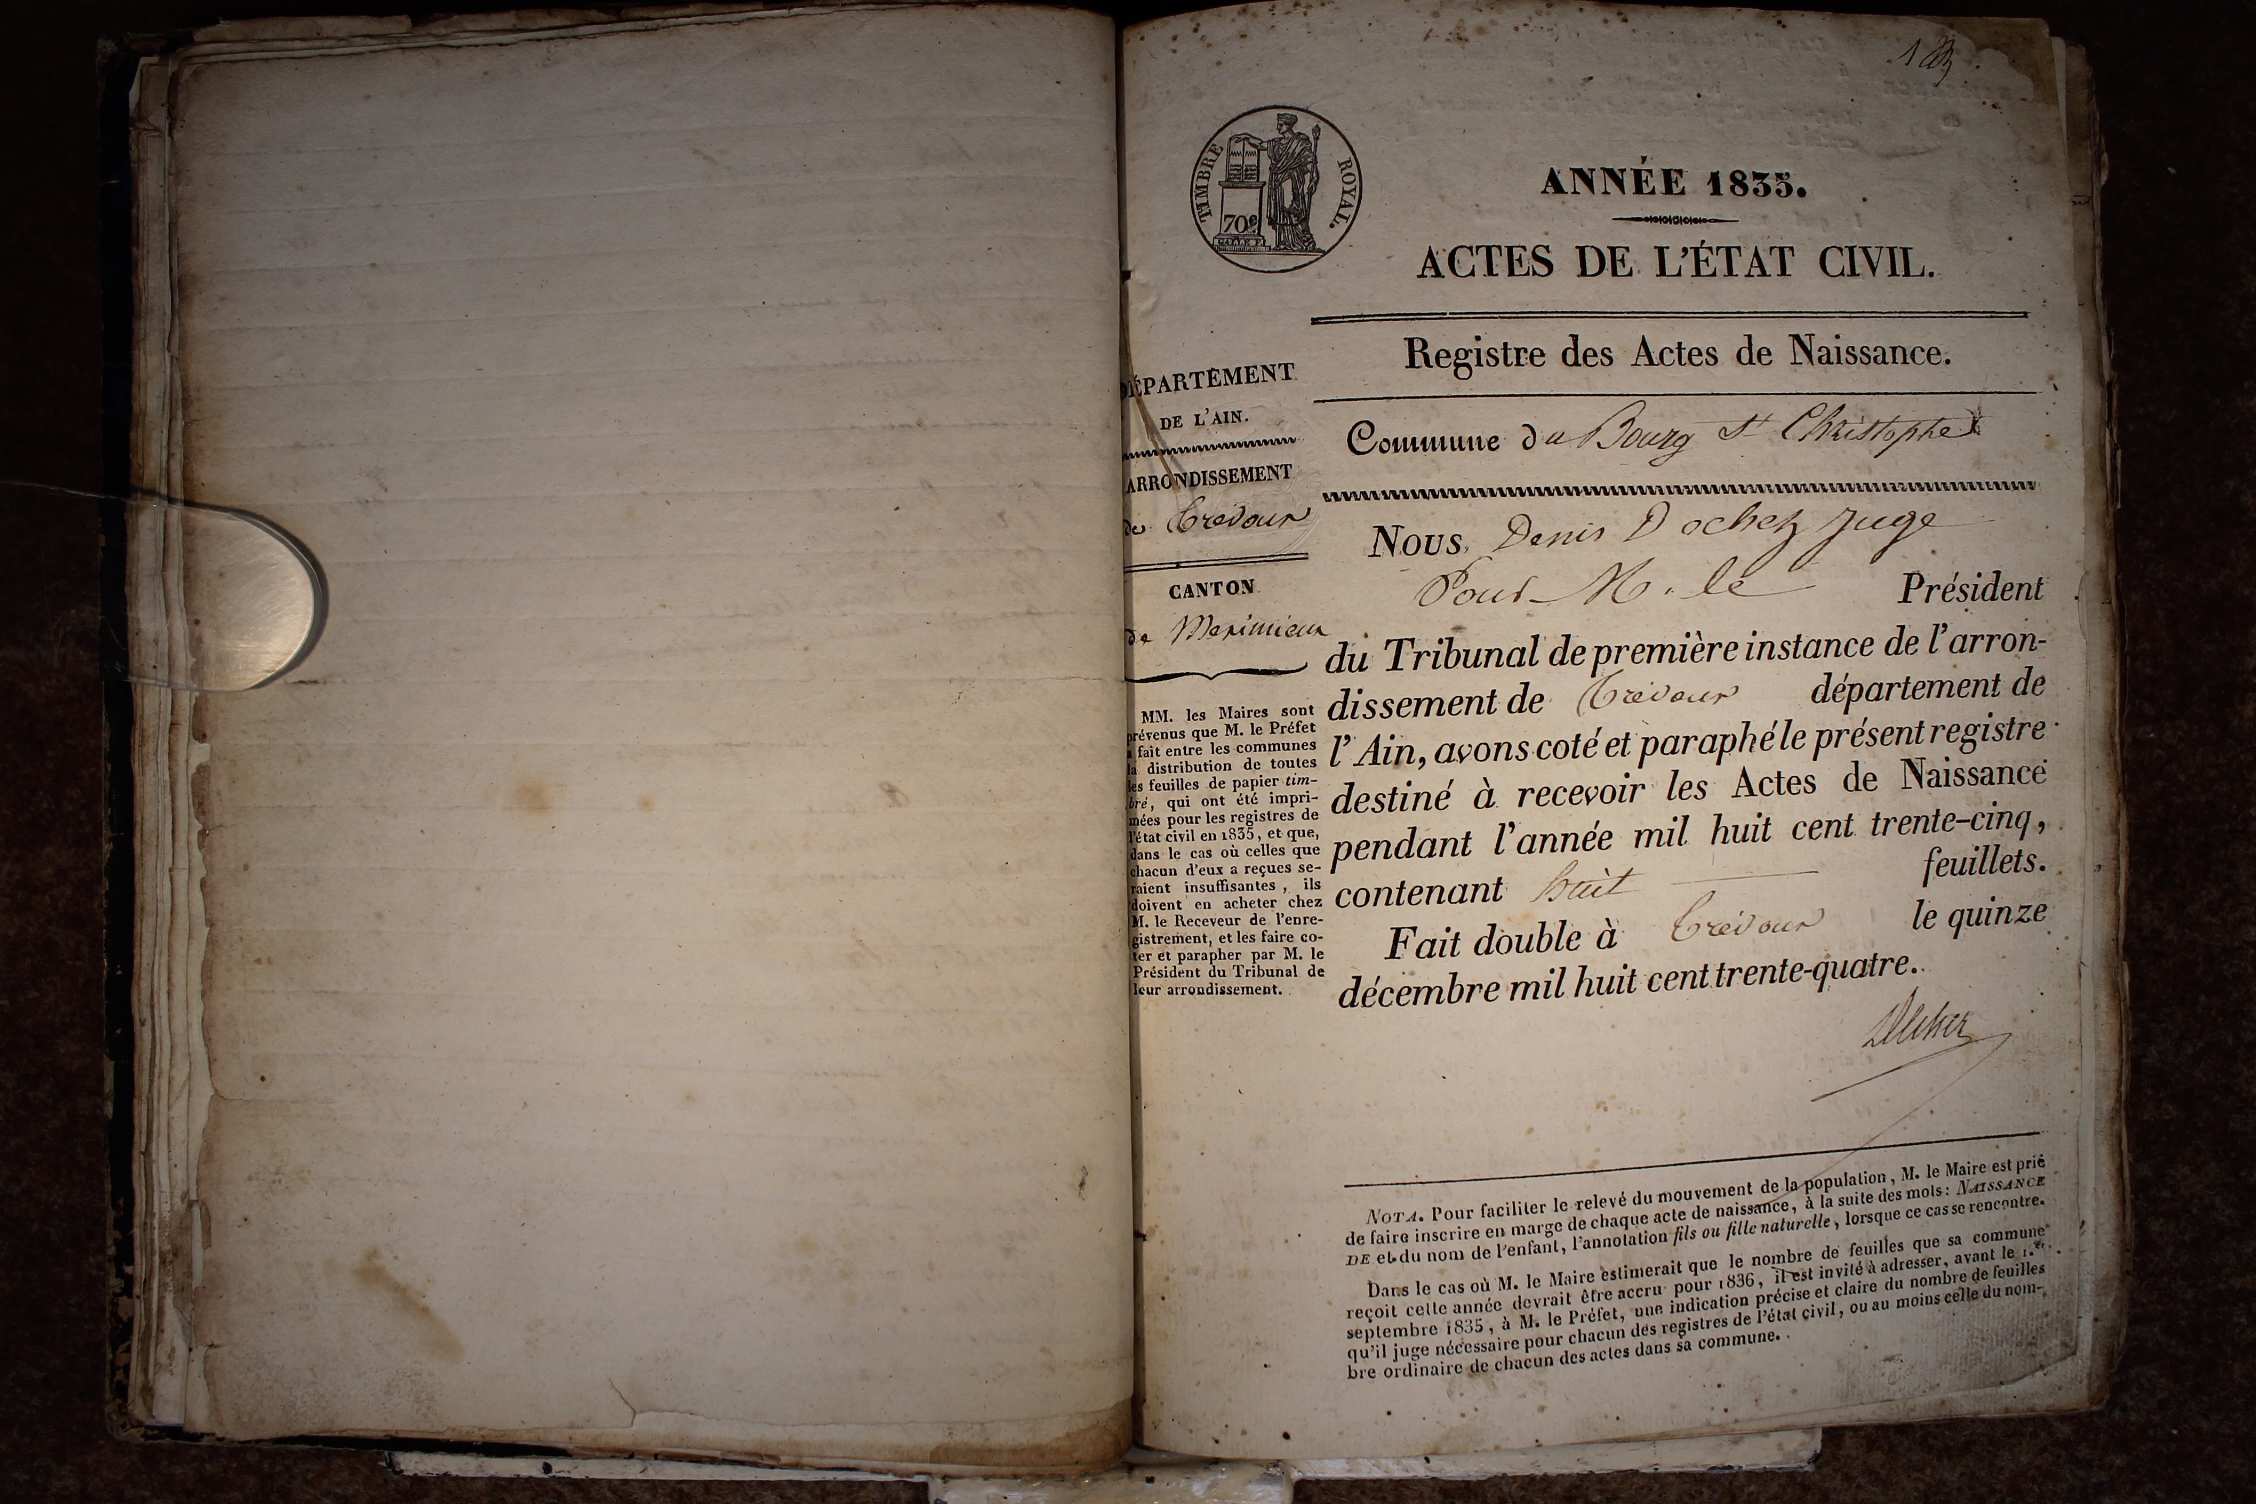 TIMBRE ROYAL.
70c
ANNÉE 1835.
ACTES DE L'ÉTAT CIVIL.
Registre des Actes de Naissance.
Commune du Bourg St Christophe
DÉPARTEMENT
DE L'AIN.
ARRONDISSEMENT
de Trévoux
CANTON
de Meximieux
MM. les Maires sont
prévenus que M. le Préfet
a fait entre les communes
la distribution de toutes
les feuilles de papier tim-
bré, qui ont été impri-
mées pour les registres de
l'état civil en 1835, et que,
dans le cas où celles que
chacun d'eux a reçues se-
raient insuffisantes, ils
doivent en acheter chez
M. le Receveur de l'enre-
gistrement, et les faire co-
ter et parapher par M. le
Président du Tribunal de
leur arrondissement.
Nous, Denis Dochez Juge
Pour M. le Président
du Tribunal de première instance de l'arron-
dissement de Trévoux département de
l'Ain, avons coté et paraphé le présent registre
destiné à recevoir les Actes de Naissance
pendant l'année mil huit cent trente-cinq,
contenant huit feuillets.
Fait double à Trévoux le quinze
décembre mil huit cent trente-quatre.
NOTA. Pour faciliter le relevé du mouvement de la population, M. le Maire est prié
de faire inscrire en marge de chaque acte de naissance, à la suite des mots: NAISSANCE
DE et du nom de l'enfant, l'annotation fils ou fille naturelle, lorsque ce cas se rencontre.
Dans le cas où M. le Maire estimerait que le nombre de feuilles que sa commune
reçoit cette année devrait être accru pour 1836, il est invité à adresser, avant le 1.er
septembre 1835, à M. le Préfet, une indication précise et claire du nombre de feuilles
qu'il juge nécessaire pour chacun des registres de l'état civil, ou au moins celle du nom-
bre ordinaire de chacun des actes dans sa commune.